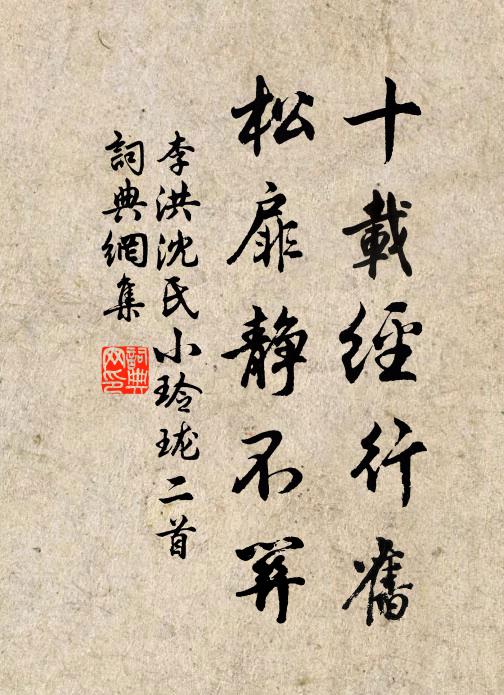 十載經行舊
松扉静不關
李洪沈氏小玲瓏二首
詞典網集
詞典
网印